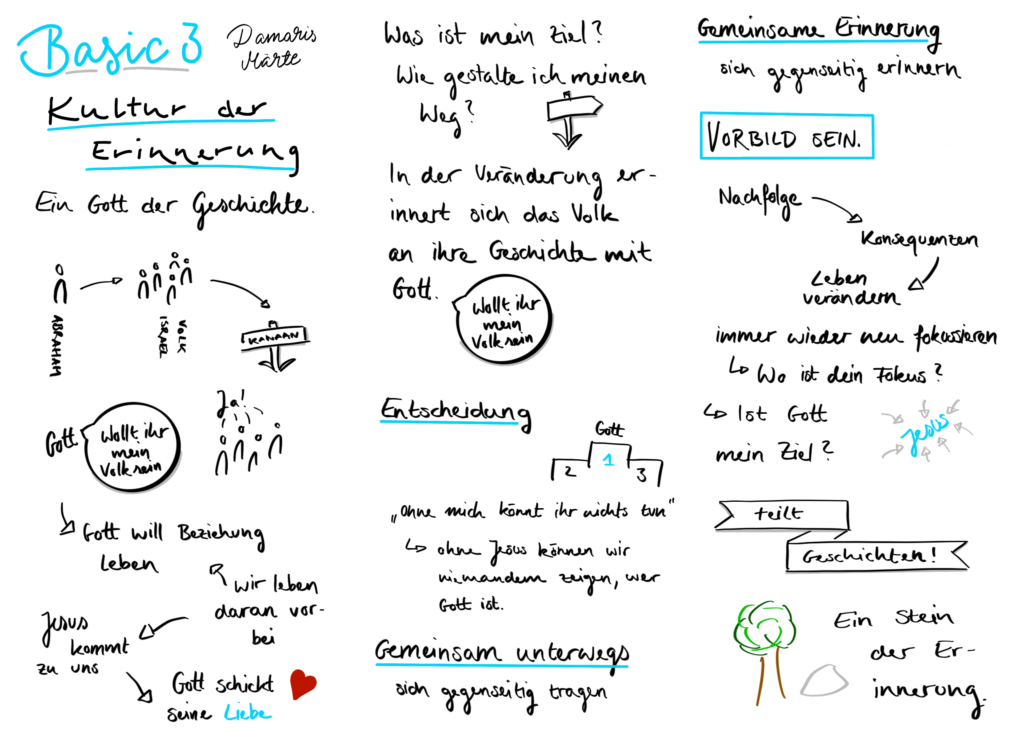 Basic 3
Damaris
Märte
Kultur der
Erinnerung
Ein Gott der Geschichte.
ABRAHAM
VOLK
ISRAEL
KANAAN
Gott
Wollt ihr
mein
Volk sein
Ja!
Gott will Beziehung
leben
wir leben
daran vor-
bei
Jesus
kommt
zu uns
Gott schickt
seine Liebe
Was ist mein Ziel?
Wie gestalte ich meinen
Weg?
In der Veränderung er-
innert sich das Volk
an ihre Geschichte mit
Gott.
Wollt ihr
mein
Volk sein
Entscheidung
Gott
2 1 3
„ohne mich könnt ihr nichts tun"
ohne Jesus können wir
niemandem zeigen, wer
Gott ist.
Gemeinsam unterwegs
sich gegenseitig tragen
Gemeinsame Erinnerung
sich gegenseitig erinnern
VORBILD SEIN.
Nachfolge
Konsequenzen
Leben
verändern
immer wieder neu fokussieren
Wo ist dein Fokus?
Ist Gott
mein Ziel?
Jesus
teilt
Geschichten!
Ein Stein
der Er-
innerung.